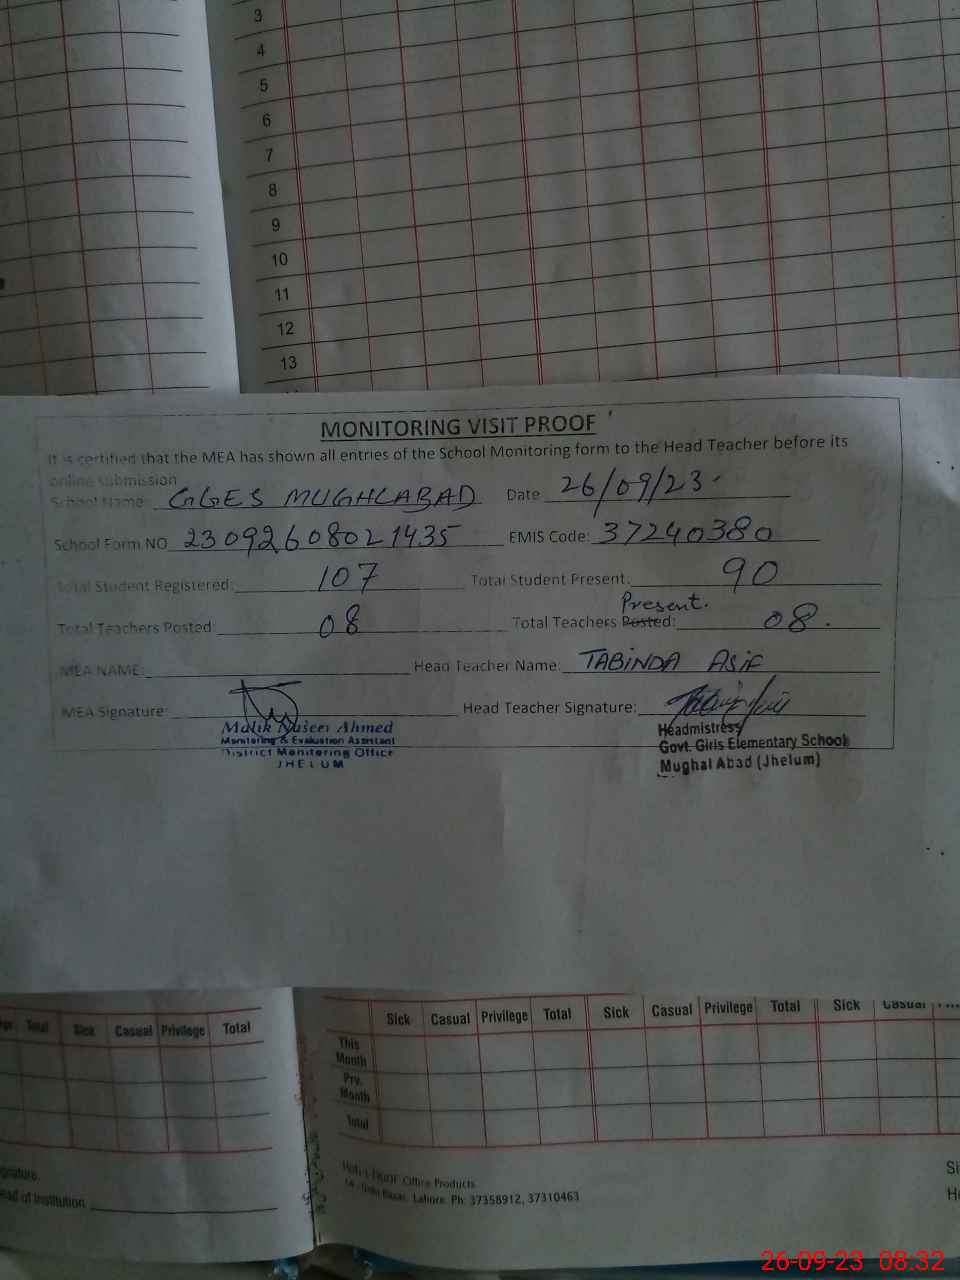 3
4
5
6
7
8
9
10
11
12
13
MONITORING VISIT PROOF
It is certified that the MEA has shown all entries of the School Monitoring form to the Head Teacher before its
online submission
School Name: GGES MUGHLABAD Date 26/09/23
School Form NO 23092608021435 EMIS Code: 37240380
Total Student Registered: 107 Total Student Present: 90
Present.
Total Teachers Posted: 08 Total Teachers Posted: 08.
MEA NAME: Head Teacher Name: TABINDA ASIF
MEA Signature: Head Teacher Signature:
Malik Naseer Ahmed
Monitoring & Evaluation Assistant
District Monitoring Office
JHELUM
Headmistress
Govt. Girls Elementary School
Mughal Abad (Jhelum)
Total Sick Casual Privilege Total
Sick Casual Privilege Total Sick Casual Privilege Total Sick Casual
This
Month
Prv.
Month
Total
Office Products
Bazar, Lahore. Ph: 37358912, 37310463
of Institution
26-09-23 08:32